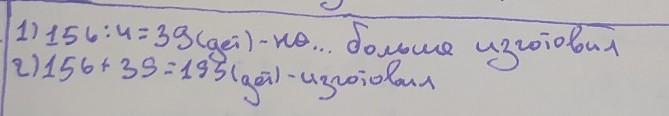 1) 156 : 4 = 39 (дет) - на... больше изготовил
2) 156 + 39 = 195 (дет) - изготовил